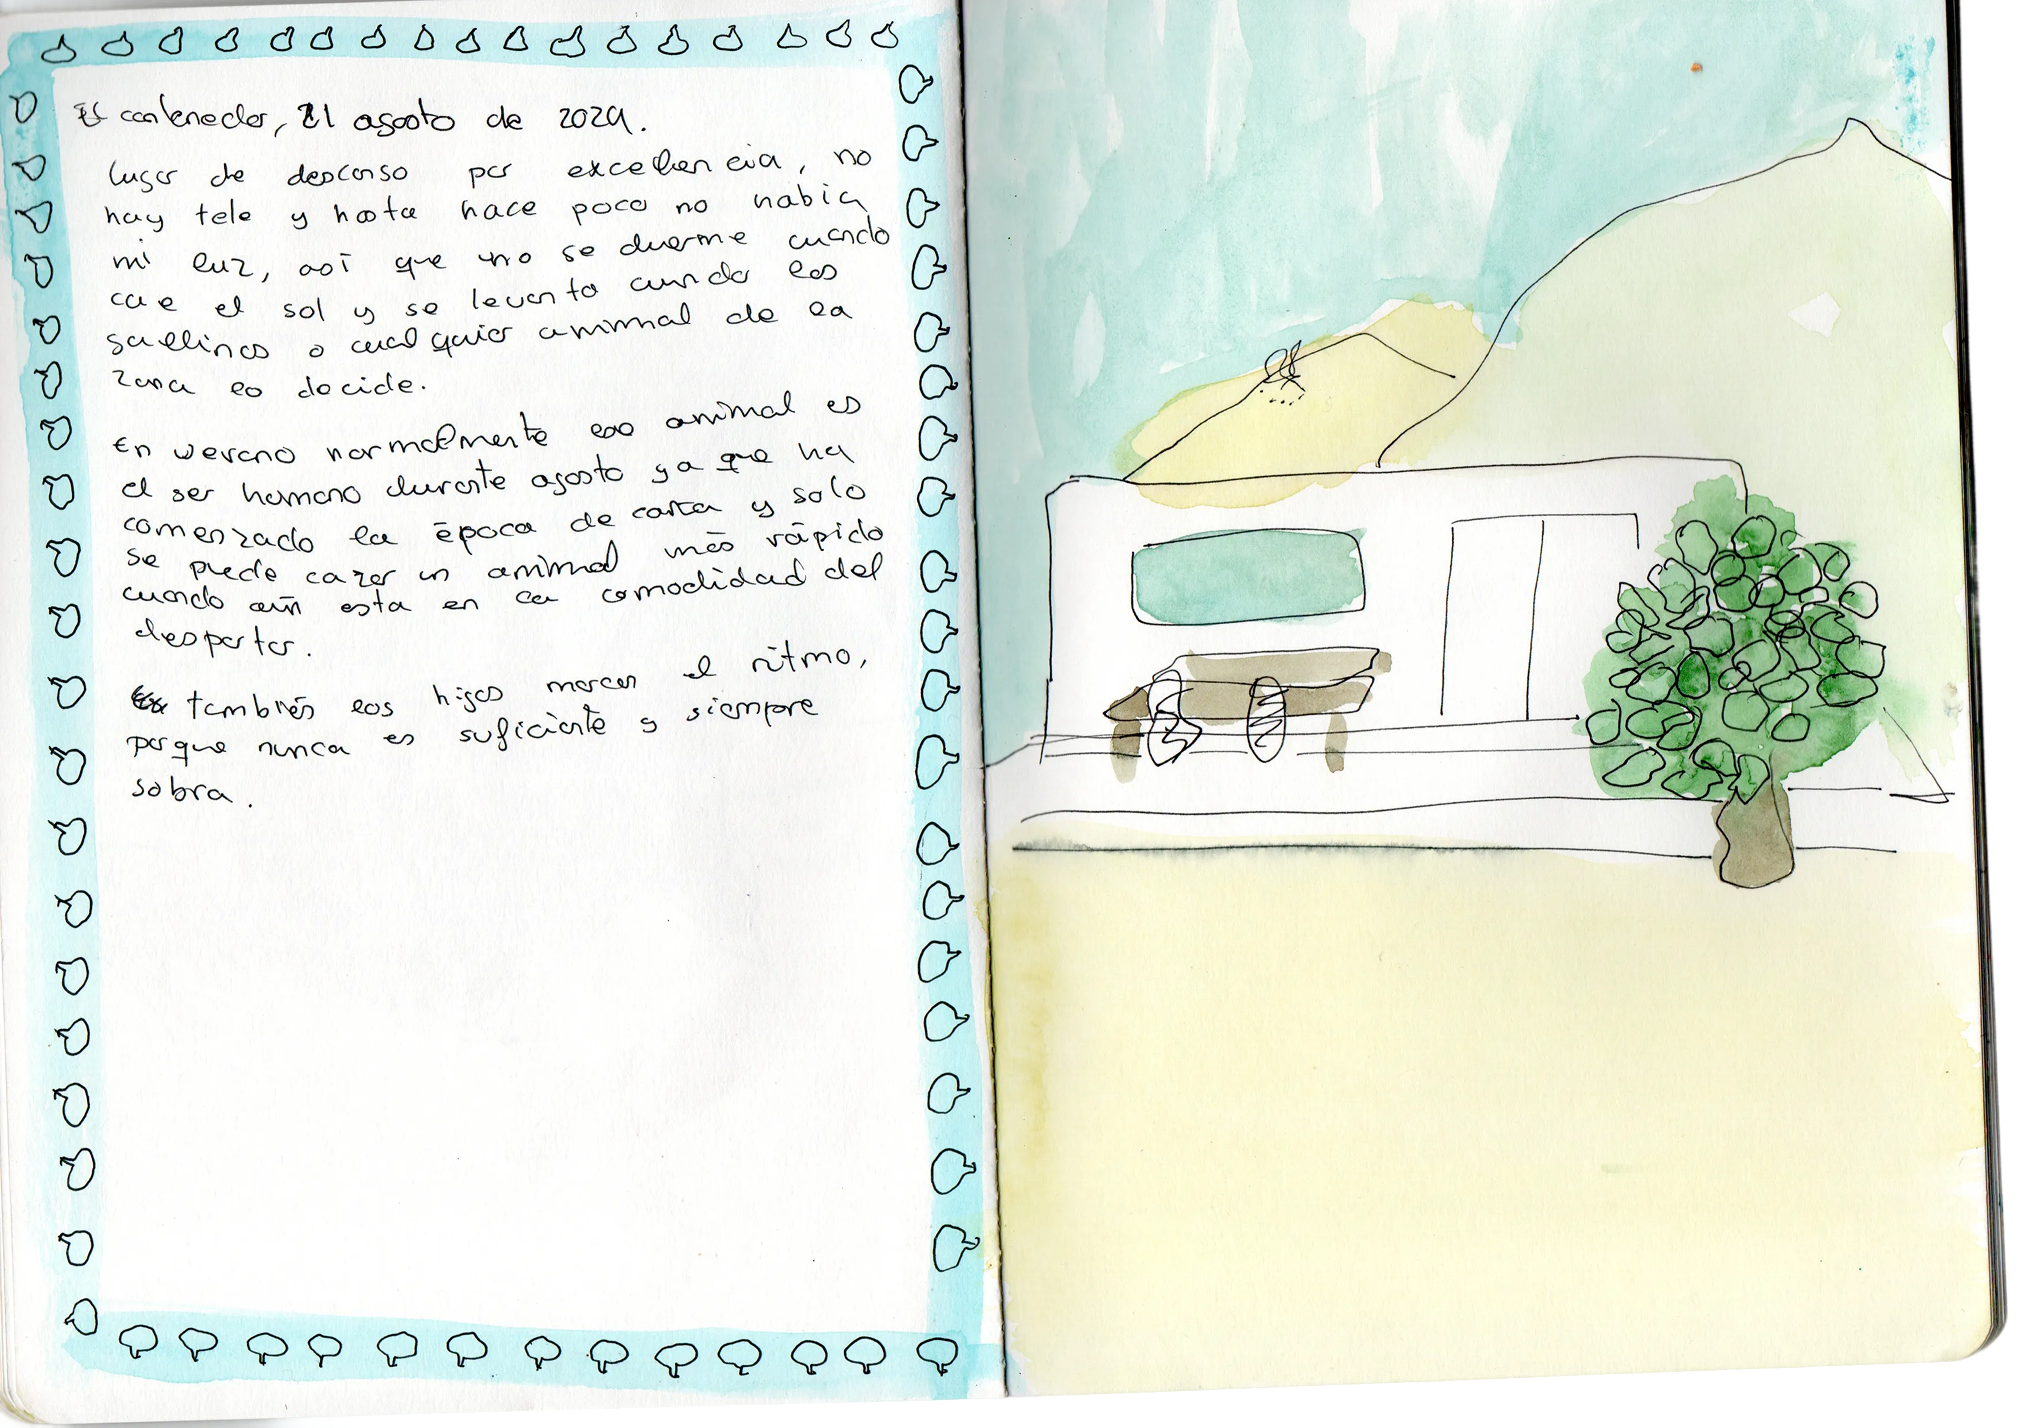 El contenedor, 21 agosto de 2024.
lugar de descanso por excelencia, no
hay tele y hasta hace poco no había
mi luz, así que uno se duerme cuando
cae el sol y se levanta cuando las
gallinas o cualquier animal de la
zona lo decide.
En verano normalmente ese animal es
el ser humano durante agosto ya que ha
comenzado la época de caza y solo
se puede cazar un animal más rápido
cuando aún esta en la comodidad del
despertar.
también los hijos marcan el ritmo,
porque nunca es suficiente y siempre
sobra.